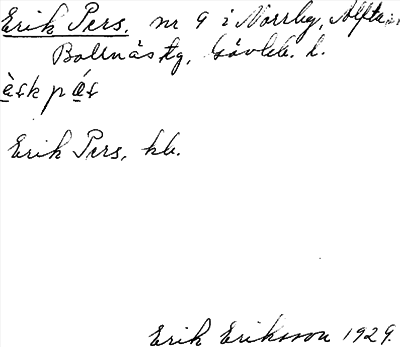 Erik Pers, nr 9 i Norrby, Alfta,
Bollnäs tg, Gävleb. l.
ὰskpás
Erik Pers, kb.
Erik Eriksson 1929.